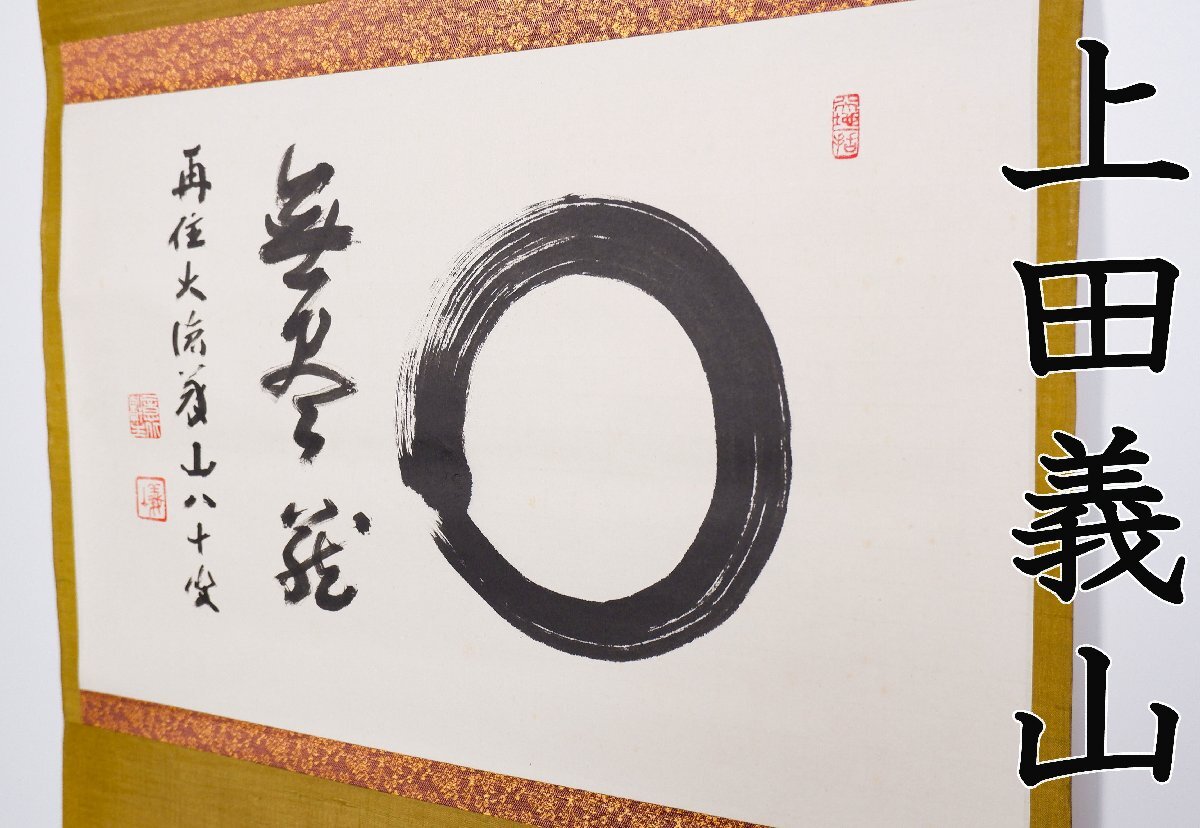 上田義山
無尽蔵
再住大徳義山八十叟